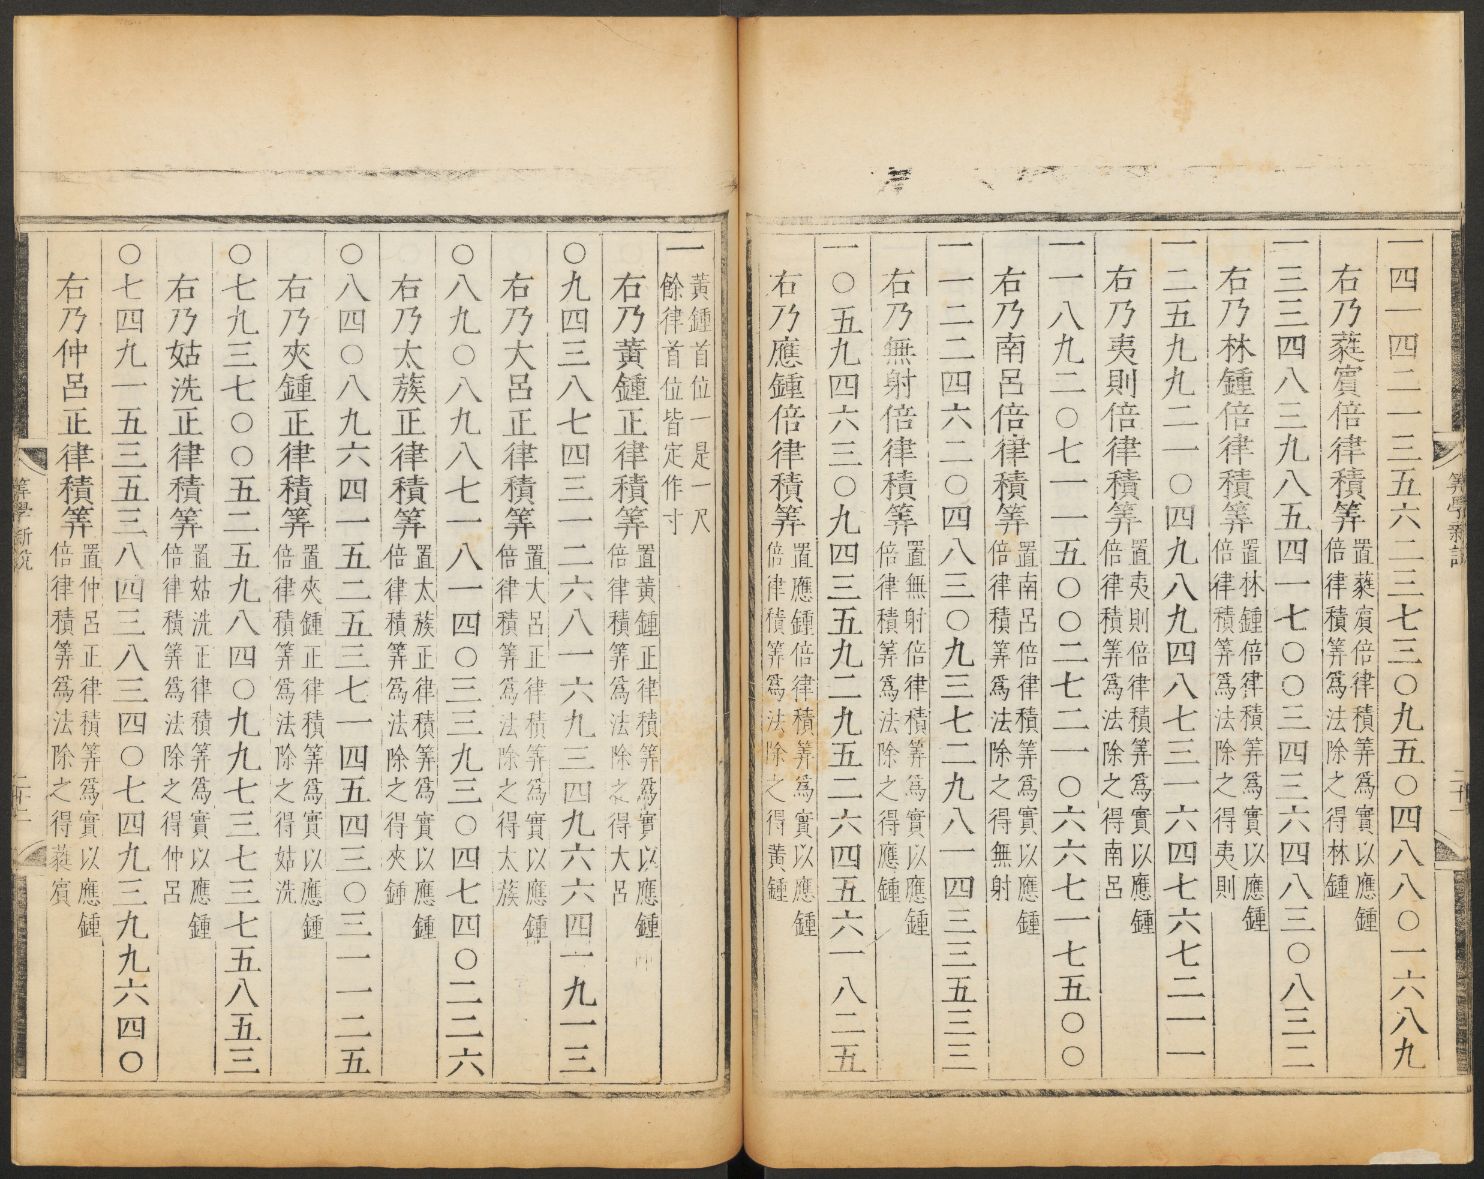 一四一四二一三五六二三七三〇九五〇四八八〇一六八九
右乃蕤賓倍律積筭
置蕤賓倍律積筭爲實以應鍾
倍律積筭爲法除之得林鍾
一三三四八三九八五四一七〇〇三四三六四八三〇八三二
右乃林鍾倍律積筭
置林鍾倍律積筭爲實以應鍾
倍律積筭爲法除之得夷則
一二五九九二一〇四九八九四八七三一六四七六七二一一
右乃夷則倍律積筭
置夷則倍律積筭爲實以應鍾
倍律積筭爲法除之得南呂
一一八九二〇七一一五〇〇二七二一〇六六七一七五〇〇
右乃南呂倍律積筭
置南呂倍律積筭爲實以應鍾
倍律積筭爲法除之得無射
一一二二四六二〇四八三〇九三七二九八一四三三五三三
右乃無射倍律積筭
置無射倍律積筭爲實以應鍾
倍律積筭爲法除之得應鍾
一〇五九四六三〇九四三五九二九五二六四五六一八二五
右乃應鍾倍律積筭
置應鍾倍律積筭爲實以應鍾
倍律積筭爲法除之得黃鍾
筭學新說
一
黃鍾首位一是一尺
餘律首位皆定作寸
右乃黃鍾正律積筭
置黃鍾正律積筭爲實以應鍾
倍律積筭爲法除之得大呂
〇九四三八七四三一二六八一六九三四九六六四一九一三
右乃大呂正律積筭
置大呂正律積筭爲實以應鍾
倍律積筭爲法除之得太蔟
〇八九〇八九八七一八一四〇三三九三〇四七四〇二二六
右乃太蔟正律積筭
置太蔟正律積筭爲實以應鍾
倍律積筭爲法除之得夾鍾
〇八四〇八九六四一五二五三七一四五四三〇三一一二五
右乃夾鍾正律積筭
置夾鍾正律積筭爲實以應鍾
倍律積筭爲法除之得姑洗
〇七九三七〇〇五二五九八四〇九九七三七三七五八五三
右乃姑洗正律積筭
置姑洗正律積筭爲實以應鍾
倍律積筭爲法除之得仲呂
〇七四九一五三五三八四三八三四〇七四九三九九六四〇
右乃仲呂正律積筭
置仲呂正律積筭爲實以應鍾
倍律積筭爲法除之得蕤賓
筭學新說